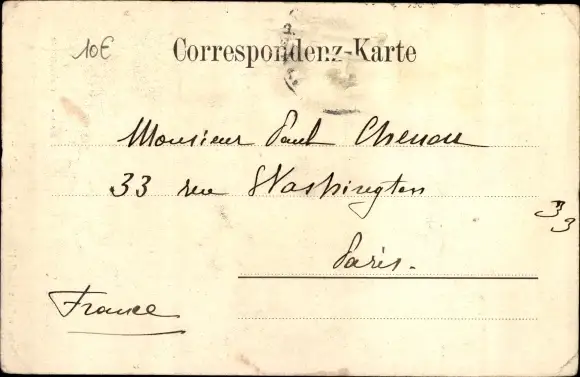 10€
Correspondenz-Karte
Monsieur Paul Chenou
33 rue Washington
33
Paris.
France